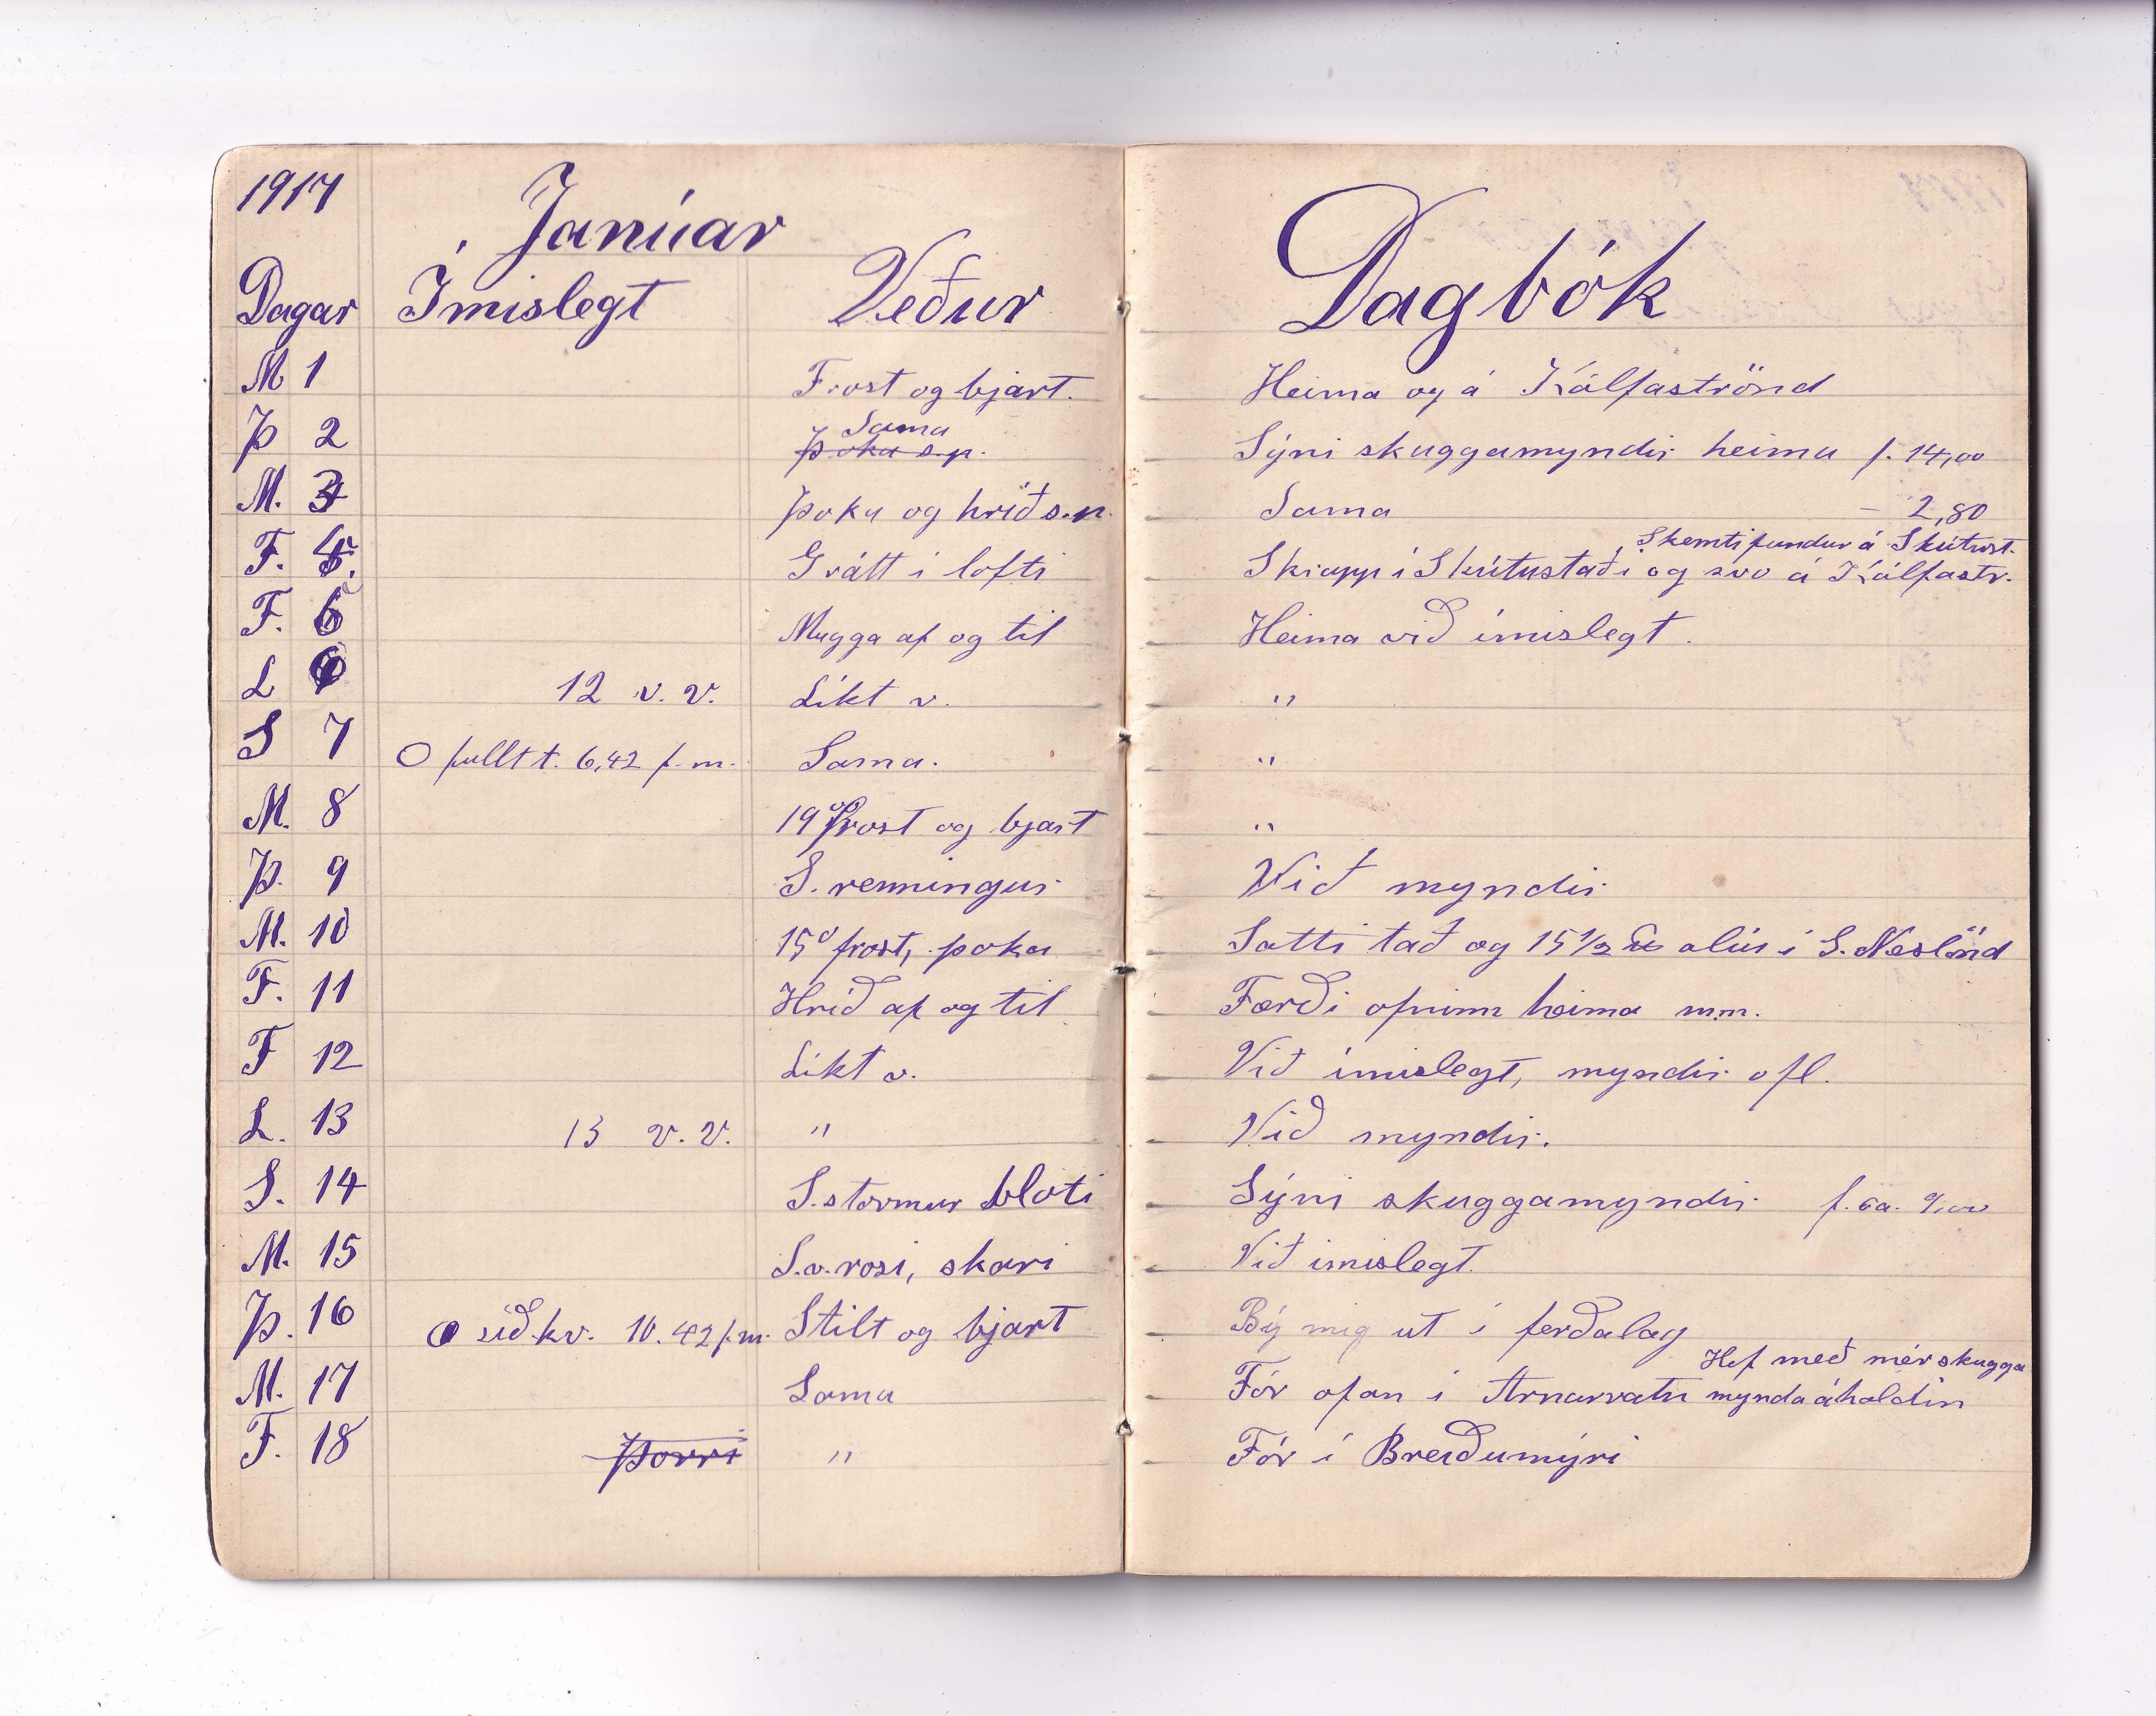 1917
Janúar
Dagar Ímislegt Veður Dagbók
M 1 Frost og bjart. Heima og á Kálfaströnd
Þ 2 Sama Þoka s.p. Sýni skuggamyndir heima f. 14,00
M. 3 Þoka og hríð s.p. Sama - 2,80
Skemtifundur á Skútust.
F. 4. Grátt i lofti Skrapp i Skútustaði og svo á Kálfastr.
F. 5 Mugga af og til Heima við ímislegt.
L 6 12 v. v. Líkt v. "
S 7 O fullt t. 6,42 f.m. Sama. "
M. 8 19° frost og bjart "
Þ. 9 S. renningur Við myndir
M. 10 15° frost, þoka Sótti tað og 15 1/2 alin i S. Neslönd
F. 11 Hríð af og til Færði ofninn heima m.m.
F 12 Líkt v. Við ímislegt, myndir ofl.
L. 13 13 v. v. " Við myndir.
S. 14 S. stormur bloti Sýni skuggamyndir f. ca. 9,00
M. 15 S.v. rosi, skari Við imislegt.
Þ. 16 síð. kv. 10.42 f.m. Stilt og bjart Bý mig út í ferðalag
Hef með mér skugga
M. 17 Sama Fór ofan í Arnarvatn myndaáholdin
F. 18 Þorri " Fór í Breiðumýri